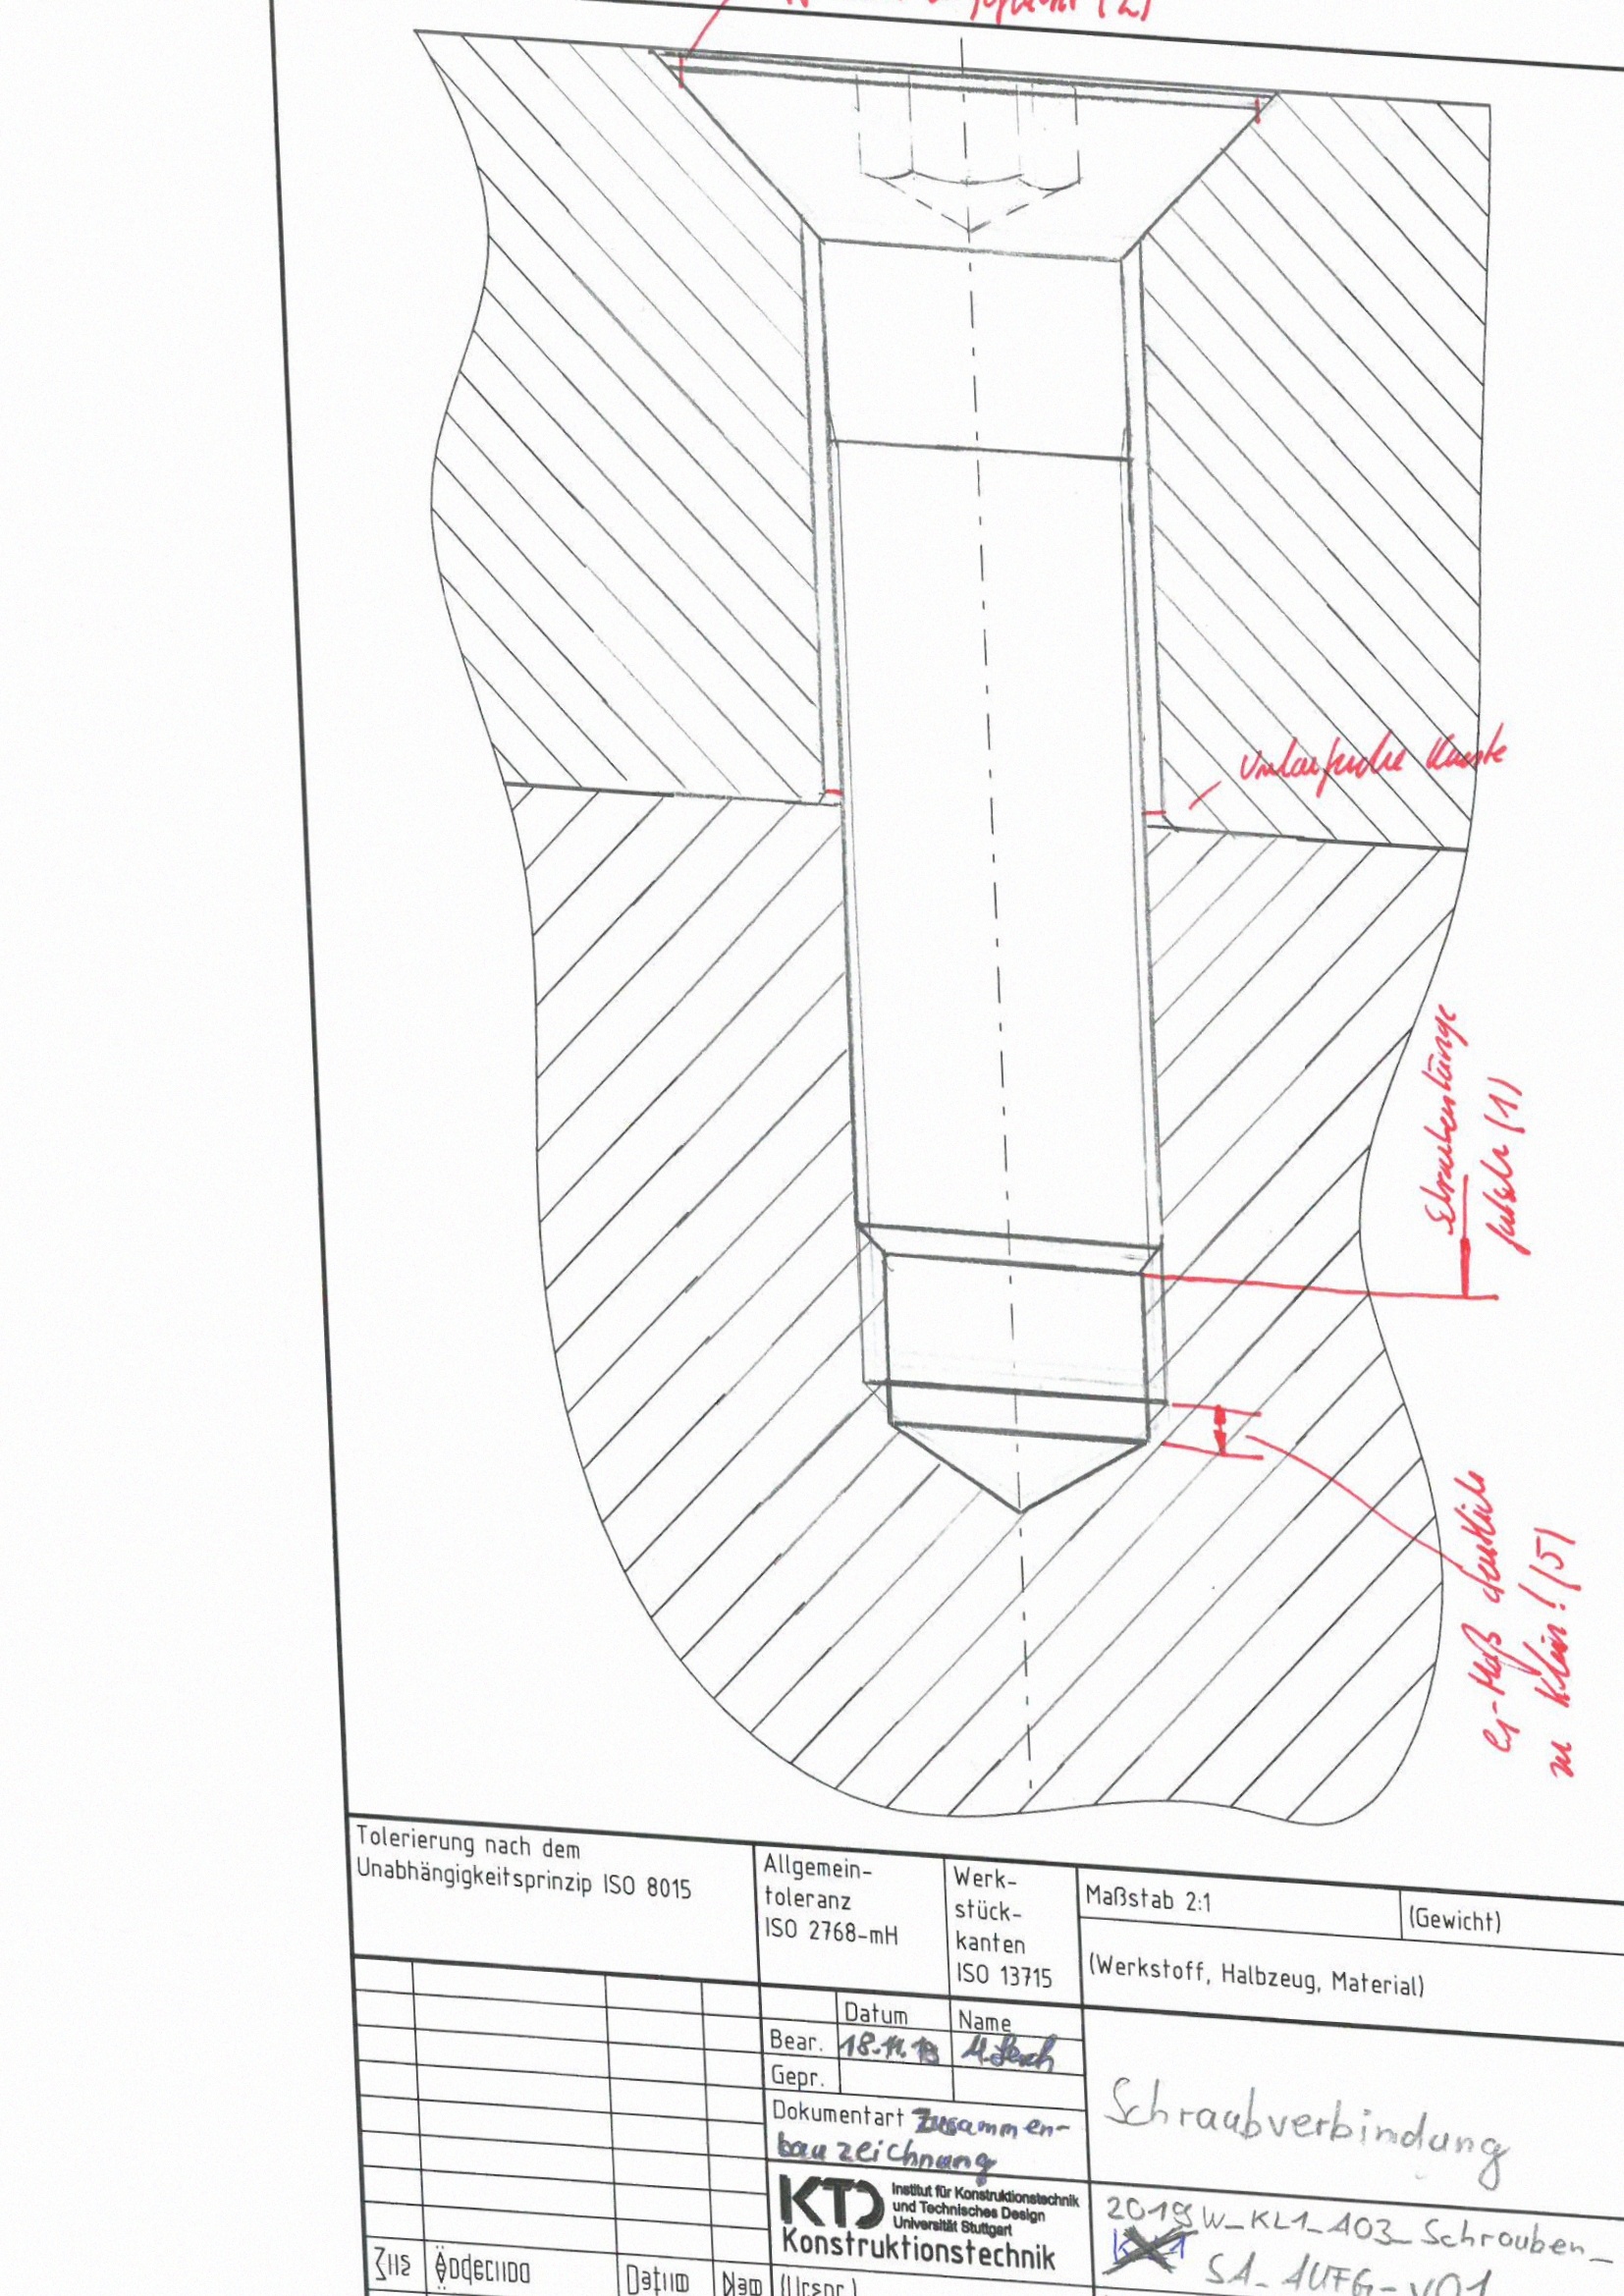 (2)
Umlaufende Kante
Schraubenlänge
falsch (1)
e1-Maß deutlich
zu klein! (5)
Tolerierung nach dem
Unabhängigkeitsprinzip ISO 8015
Allgemein-
toleranz
ISO 2768-mH
Werk-
stück-
kanten
ISO 13715
Maßstab 2:1
(Gewicht)
(Werkstoff, Halbzeug, Material)
Datum
Name
Bear.
Gepr.
Dokumentart Zusammen-
bauzeichnung
Schraubverbindung
KTD
Institut für Konstruktionstechnik
und Technisches Design
Universität Stuttgart
Konstruktionstechnik
W_KL1_A03_Schrauben_
SA_AUFG_V01
Zus
Änderung
Datum
Nam
(Urspr.)